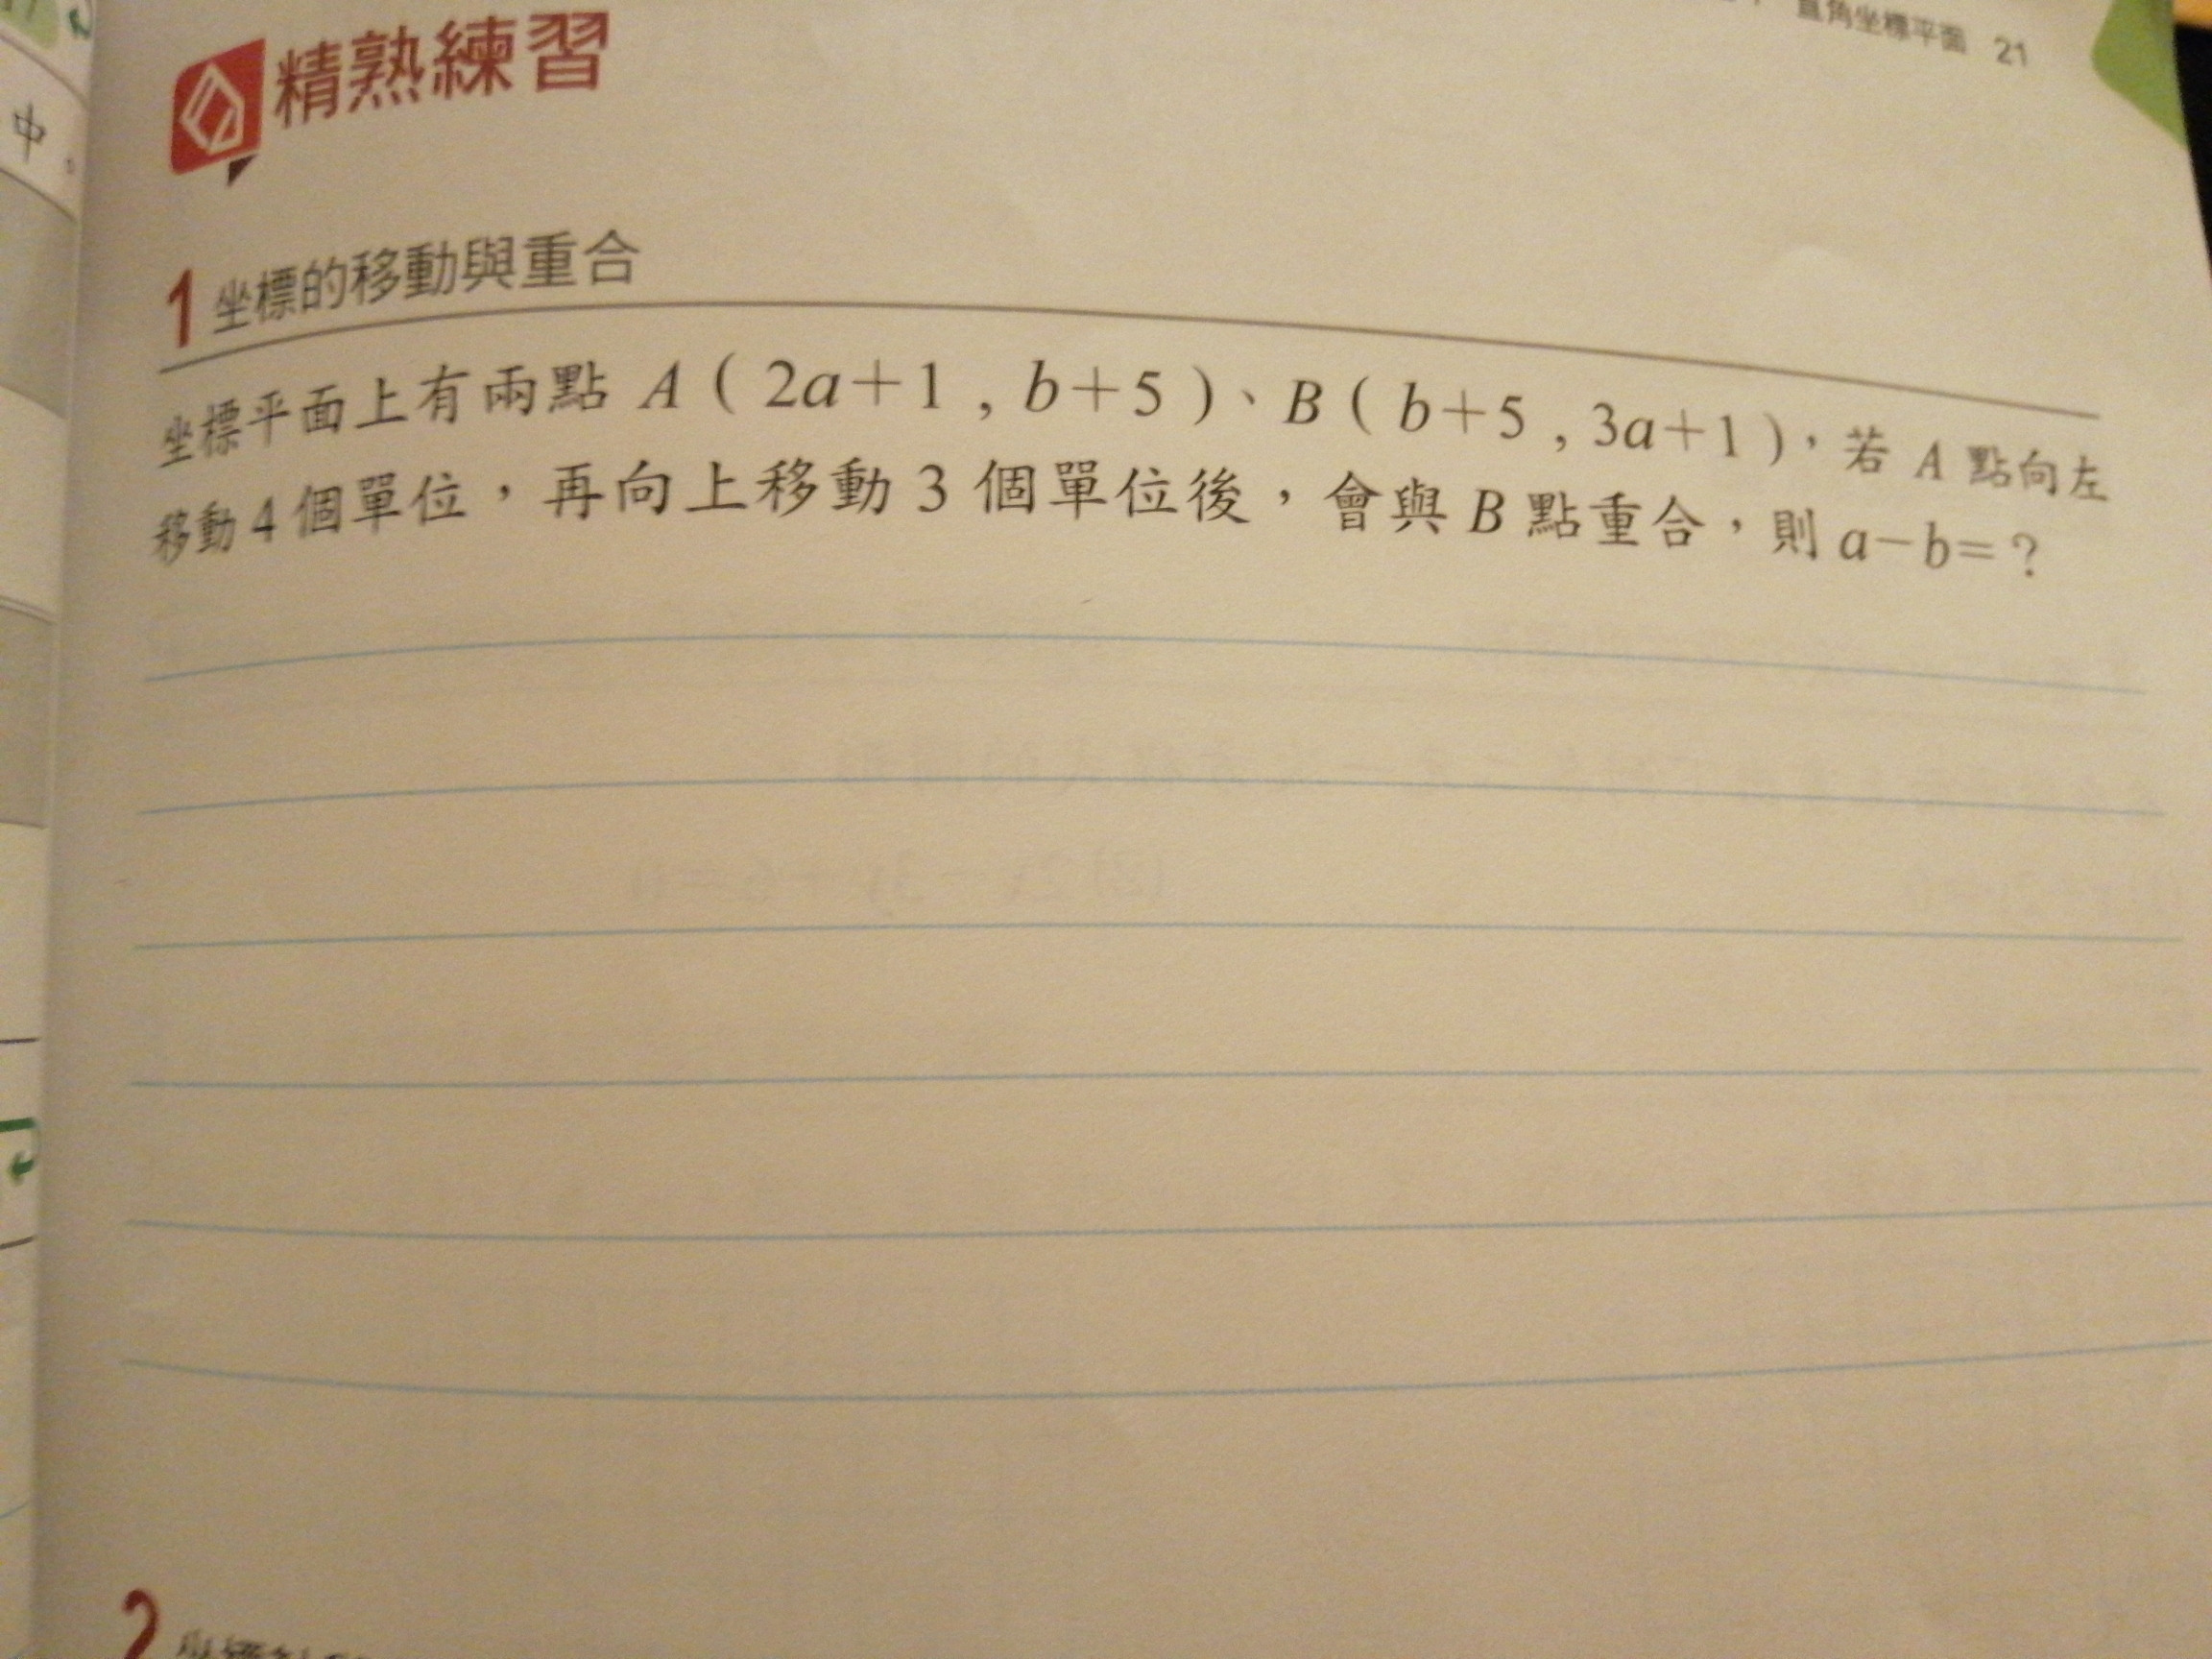 直角坐標平面 21
精熟練習
中。
1 坐標的移動與重合
坐標平面上有兩點 A ( 2a+1 , b+5 )、B ( b+5 , 3a+1 ),若 A 點向左
移動 4 個單位,再向上移動 3 個單位後,會與 B 點重合,則 a-b=?
2